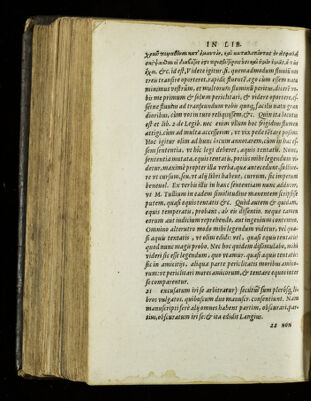 IN LIB.
ἔχει, &c. id est, Videte igitur, si, quemadmodum fluuiũ nos
tres transire oporteret, rapide fluentẽ, ego cùm essem natu
minimus vestrûm, et multorum fluminũ peritus, dicerẽ vo
bis me primum &
se fluuius ad transeundum vobis quoq; facilis natu gran
dioribus, cùm vos in tuto reliquissem, &c. Quin ita locutus
est et lib. 2 de Legib. nec enim vllum hoc frigidius flumen
attigi, cùm ad multa accesserim, vt vix pede tẽtare possim.
Hoc igitur olim ad hunc locum annotarem, cùm in hac es-
sem sententia, vt hîc legi deberet, aquis tentatis. Nunc,
sententia mutata, equis tentatis, potius mihi legendum vi-
detur, maximè propter illa verba. qua antecedunt,
vt vt cursum, seu, vt alij libri habent, currum, sic impetum
beneuol. Ex verbis illis in hanc sententiam nunc adducor,
vt M. Tullium in eadem similitudine manentem scripsisse
putem, quasi equis tentatis &c. Quid autem & quidam,
equis temperatis, probant, ab eis dissentio. neque tamen
eorum aut iudicium reprehendo, aut ingenium contemno.
Omnino alterutro modo mihi legendum videtur, vel qua-
si aquis tentatis, vt olim edidi: vel, quasi equis tentatis
quod nunc magis probo. Nec hoc quidem dissimulabo, mihi
videri sic esse legendum, quo vtamur, quasi aquis tentatis
sic in amicitijs. aliqua parte periclitatis moribus amico-
rum: vt periclitari mores amicorum, & tentare equos inter
se comparentur.
21 excusatum iri se arbitratur) secutus sum plerosq; li-
bros vulgatos, quibuscum duo manuscr. consentiunt. Nam
manuscripti ferè alij omnes habent partim, obscurari, par-
tim, obscuratum iri se: & ita edidit Langius.
22 non